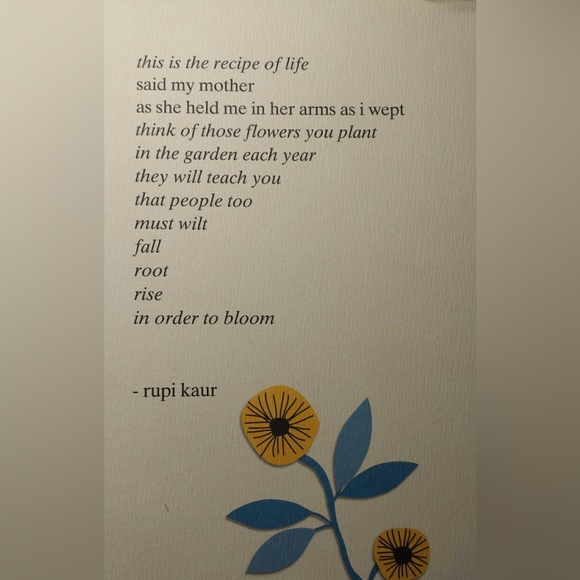 this is the recipe of life
said my mother
as she held me in her arms as i wept
think of those flowers you plant
in the garden each year
they will teach you
that people too
must wilt
fall
root
rise
in order to bloom
- rupi kaur